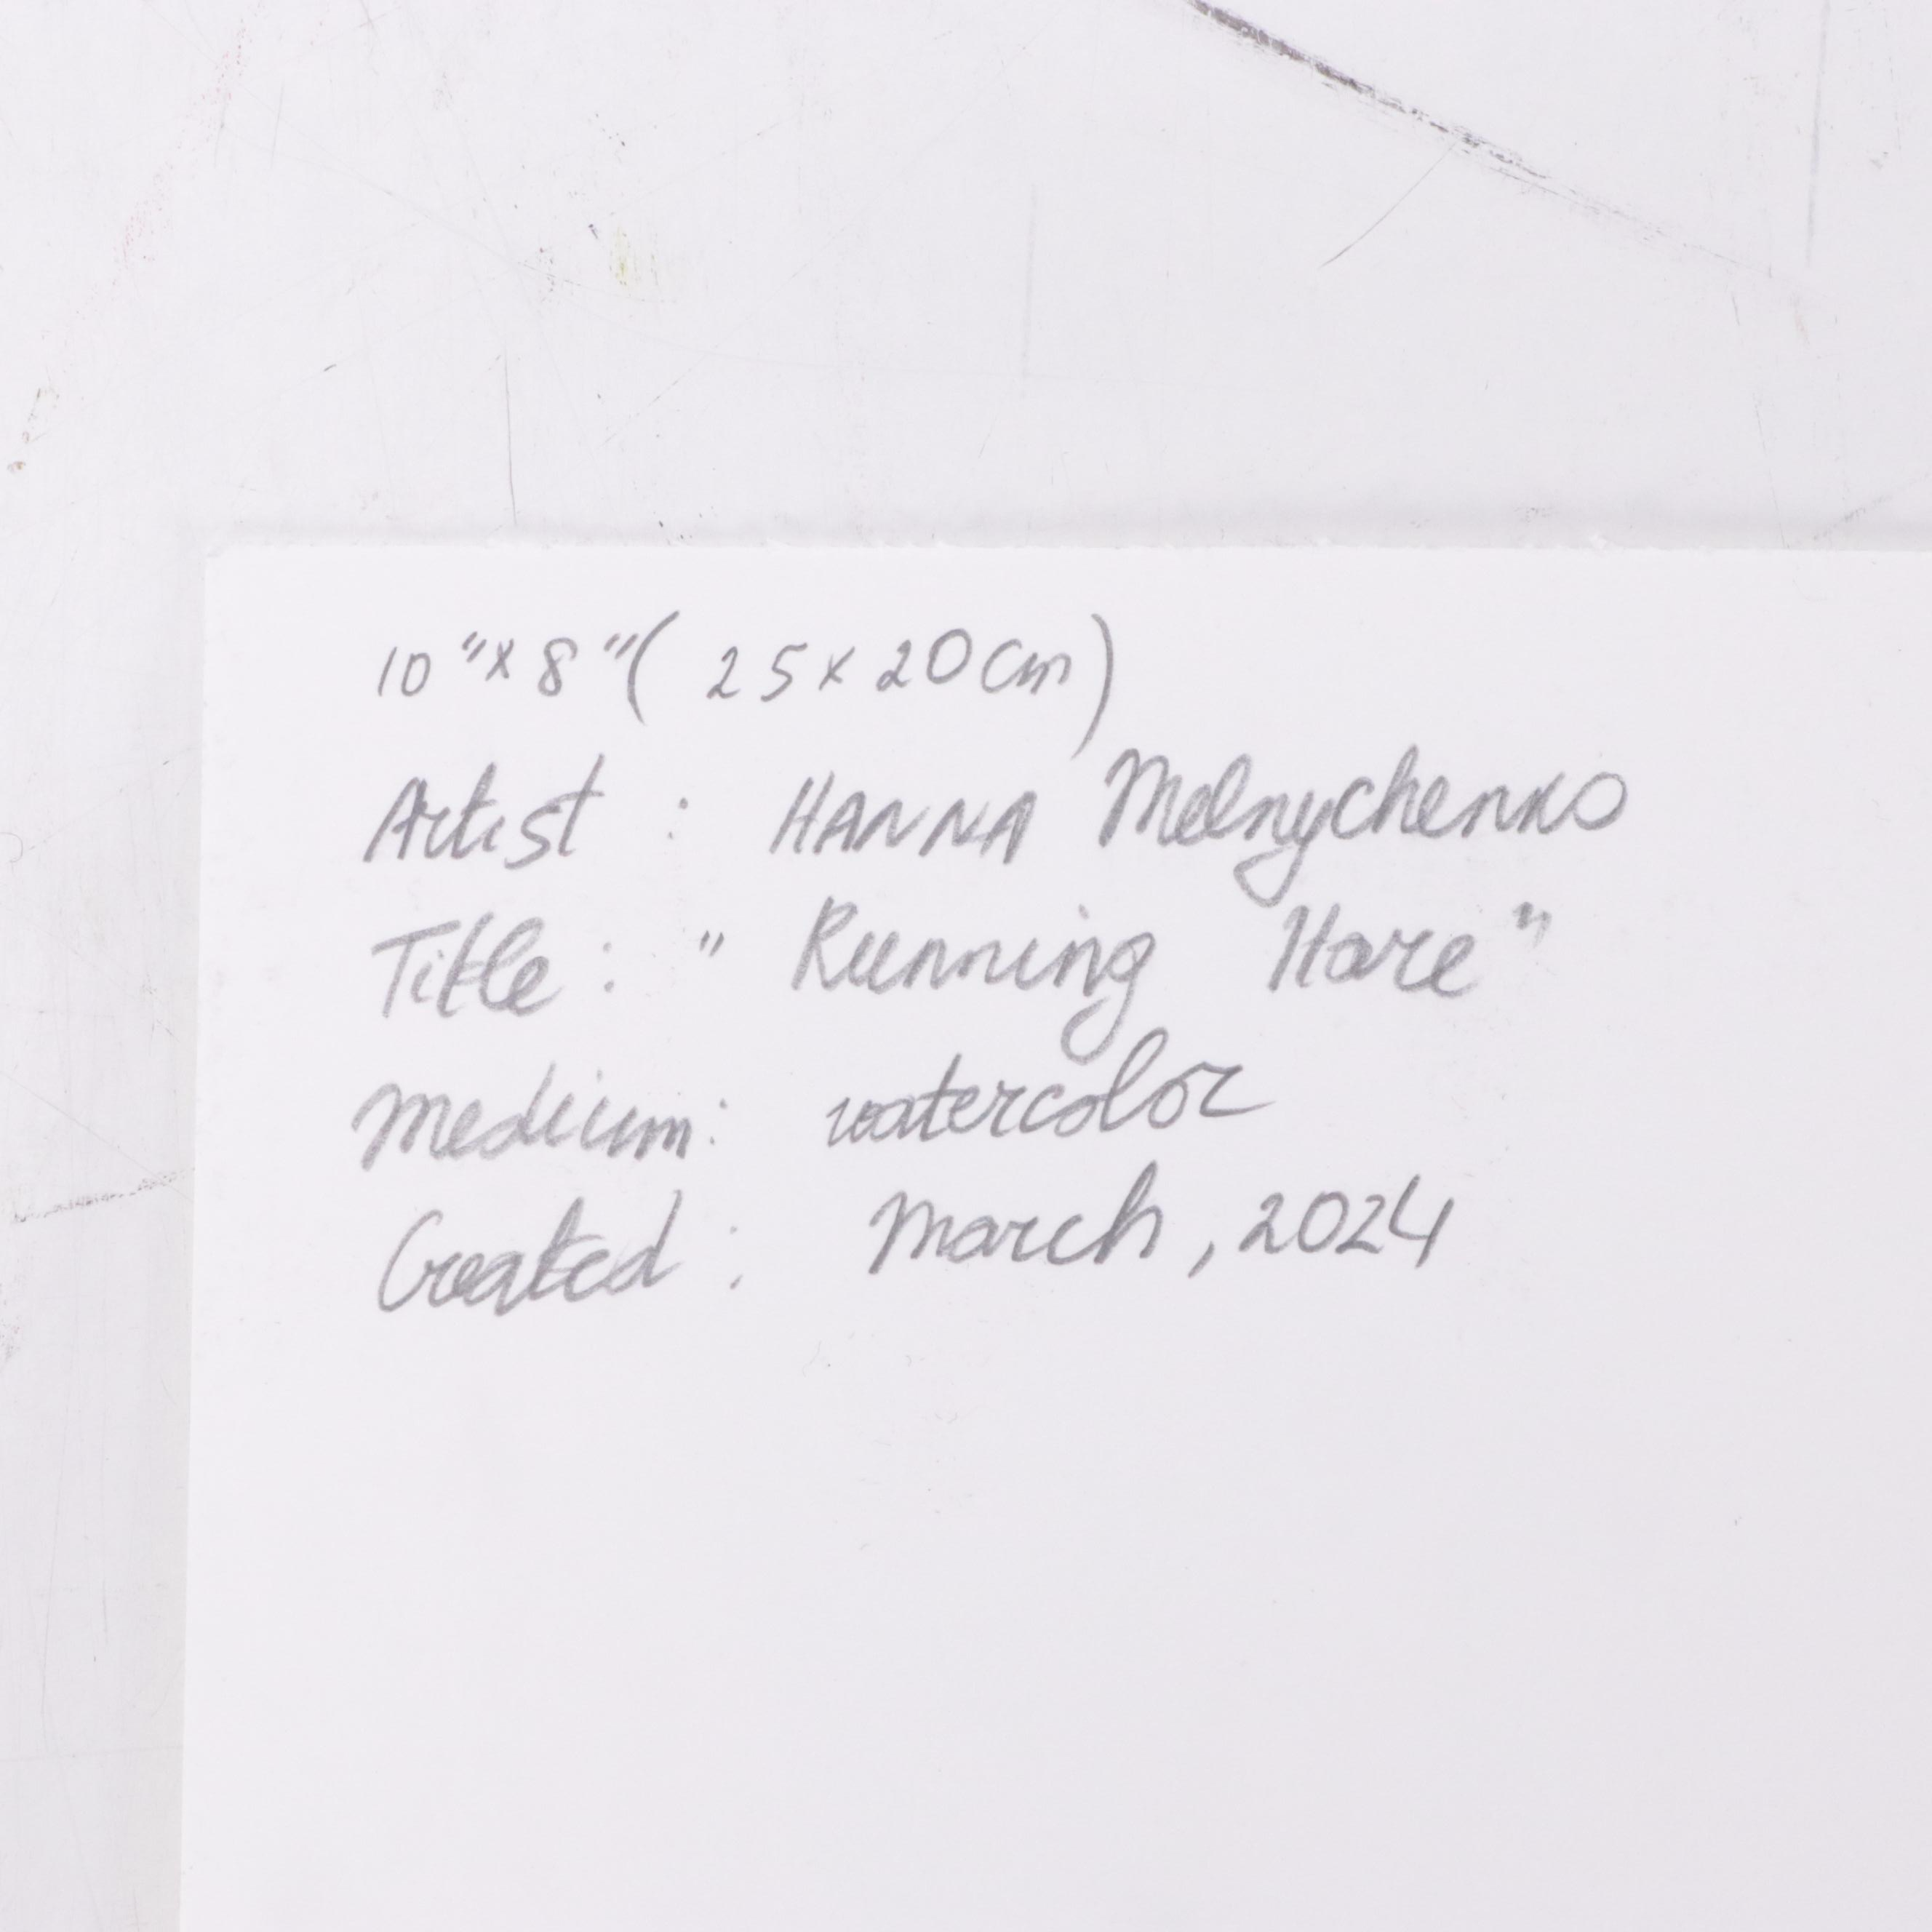 10"x8"(25x20cm)
Artist: HANNA Melnychenko
Title: "Running Hare"
Medium: watercolor
Created: March, 2024